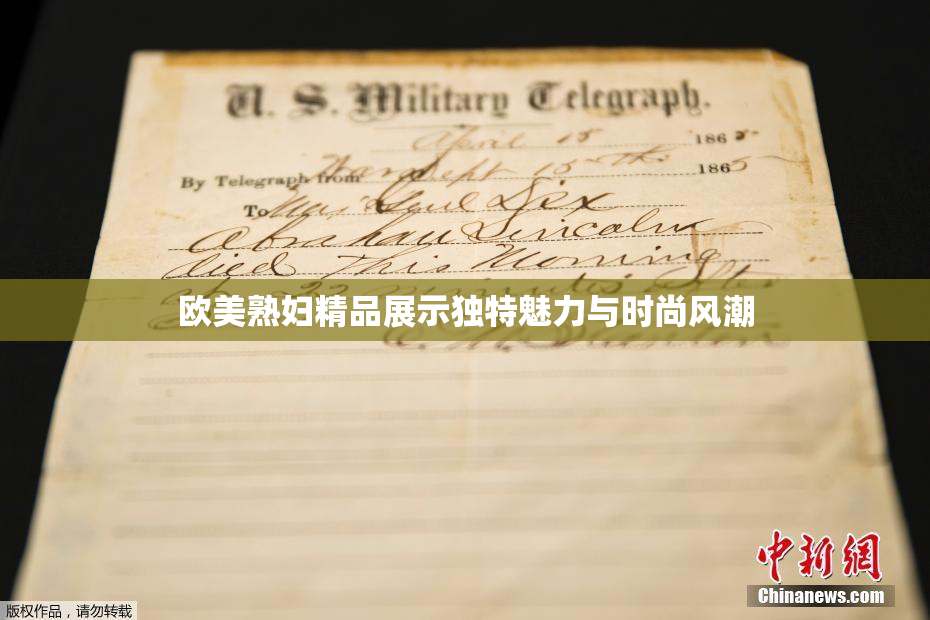 U. S. Military Telegraph.
April 15 1865
By Telegraph from War Dept 15th 1865
To Maj Genl Dix
Abraham Lincoln
died This Morning
22 minutes after
欧美熟妇精品展示独特魅力与时尚风潮
E. M. Stanton
中新網
Chinanews.com
版权作品，请勿转载